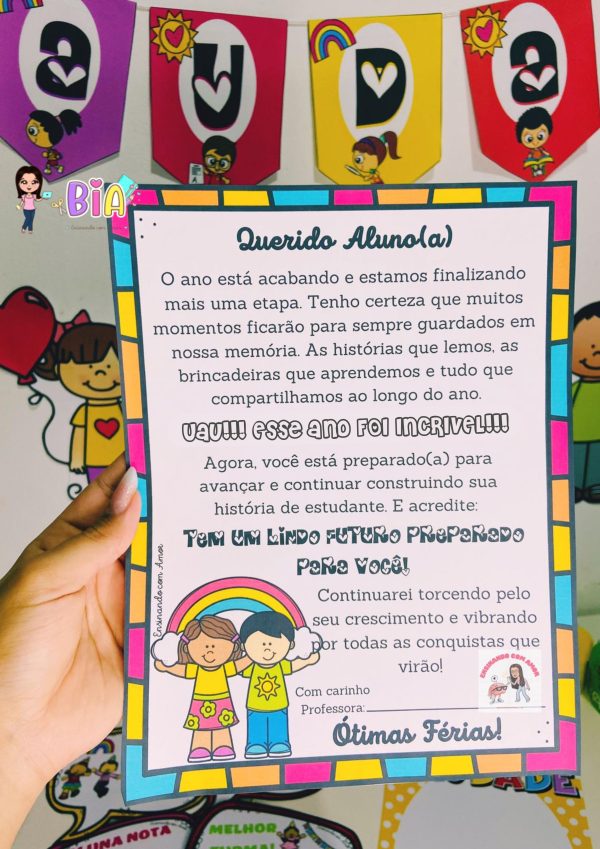 a u d a
BIA
Ensinando com Amor
Querido Aluno(a)
O ano está acabando e estamos finalizando
mais uma etapa. Tenho certeza que muitos
momentos ficarão para sempre guardados em
nossa memória. As histórias que lemos, as
brincadeiras que aprendemos e tudo que
compartilhamos ao longo do ano.
UAU!!! ESSE ANO FOI INCRIVEL!!!
Agora, você está preparado(a) para
avançar e continuar construindo sua
história de estudante. E acredite:
TEM UM LINDO FUTURO PREPARADO
PARA VOCÊ!
Continuarei torcendo pelo
seu crescimento e vibrando
por todas as conquistas que
virão!
Ensinando com Amor
ENSINANDO COM AMOR
Com carinho
Professora:
Ótimas Férias!
LUNA NOTA
MELHOR